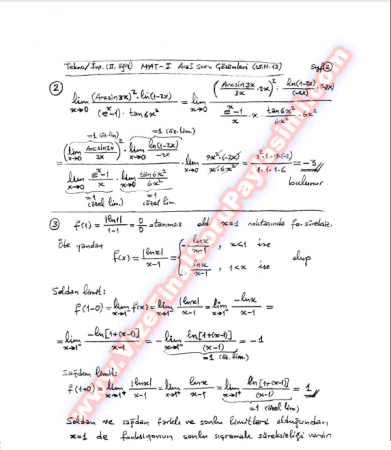 Tekno/İnş. (II. öğr) MAT-I Ara Soru Çözümleri (25.11.13) Sayfa(2)
(2) lim x→0 (Arcsin3x)²·ln(1-2x) / (eˣ-1)·tan6x² = lim x→0 (Arcsin3x/3x · 3x)² · ln(1-2x)/(-2x) · (-2x) / (eˣ-1)/x · x · tan6x²/6x² · 6x²
=1 (öz.lim) =1 (öz.lim.)
= (lim x→0 Arcsin3x/3x)² · lim x→0 ln(1-2x)/-2x / lim x→0 (eˣ-1)/x · lim x→0 tan6x²/6x² · lim x→0 9x²·(-2x)/x·6x² = 1²·1·9·(-2)/1·1·1·6 = -3
=1 (özel lim.) =1 (özel lim
bulunur.
(3) f(1) = |ln1|/1-1 = 0/0 = tanımsız old. x=1 noktasında fo. süreksiz.
Öte yandan
f(x) = |lnx|/x-1 = { -lnx/x-1 , x<1 ise
lnx/x-1 , 1<x ise olup
Soldan limit:
f(1-0) = lim x→1⁻ f(x) = lim x→1⁻ |lnx|/x-1 = lim x→1⁻ -lnx/x-1 =
= lim x→1⁻ -ln[1+(x-1)]/x-1 = - lim x→1⁻ ln[1+(x-1)]/(x-1) = -1
=1 (öz. lim.)
Sağdan limit:
f(1+0) = lim x→1⁺ |lnx|/x-1 = lim x→1⁺ lnx/x-1 = lim x→1⁺ ln[1+(x-1)]/(x-1) = 1
=1 (özel lim)
Soldan ve sağdan farklı ve sonlu limitleri olduğundan
x=1 de fonksiyonun sonlu sıçramalı süreksizliği vardır.
www.VizeSinavSoruPaylasimli.com